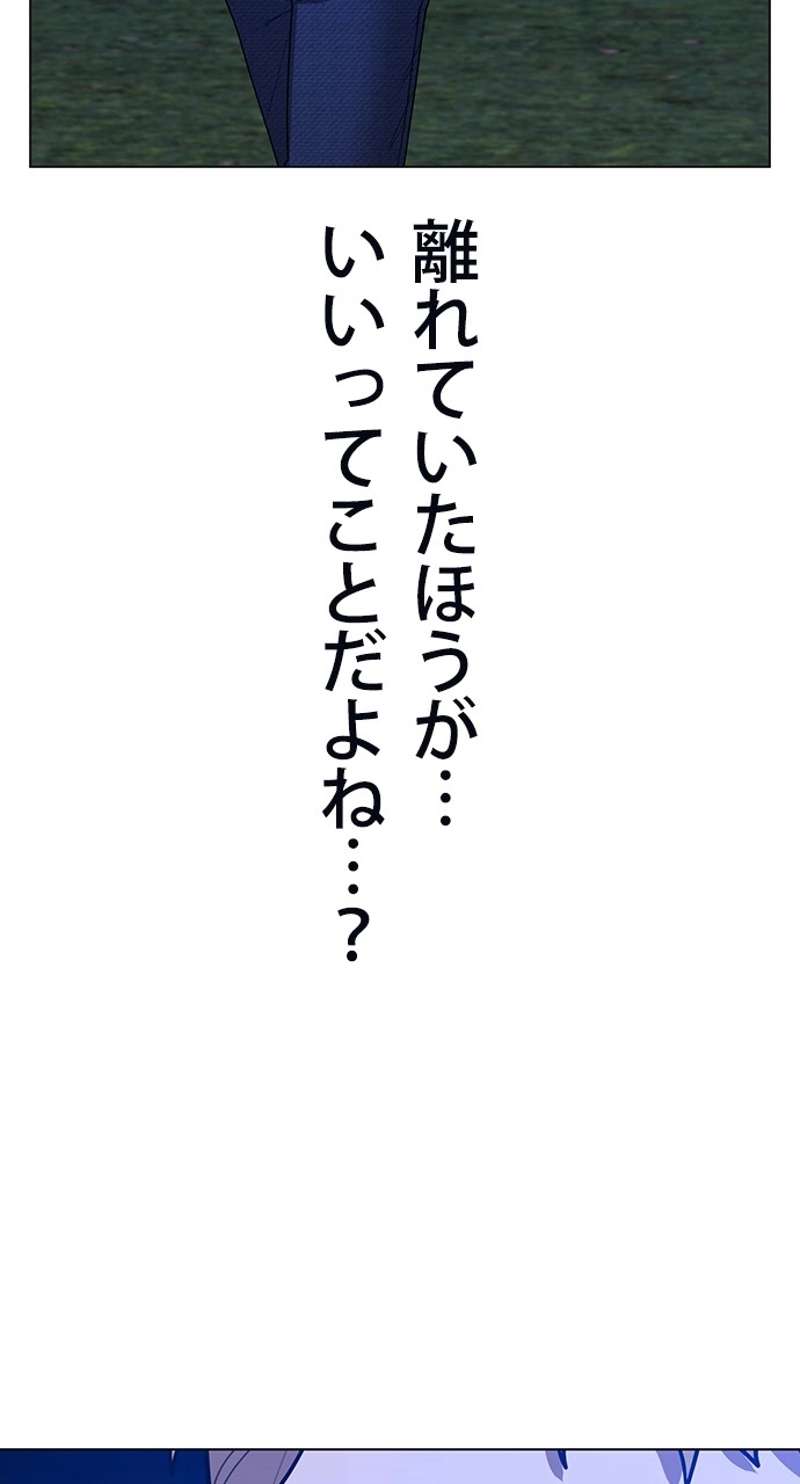 離れていたほうが…
いいってことだよね…？